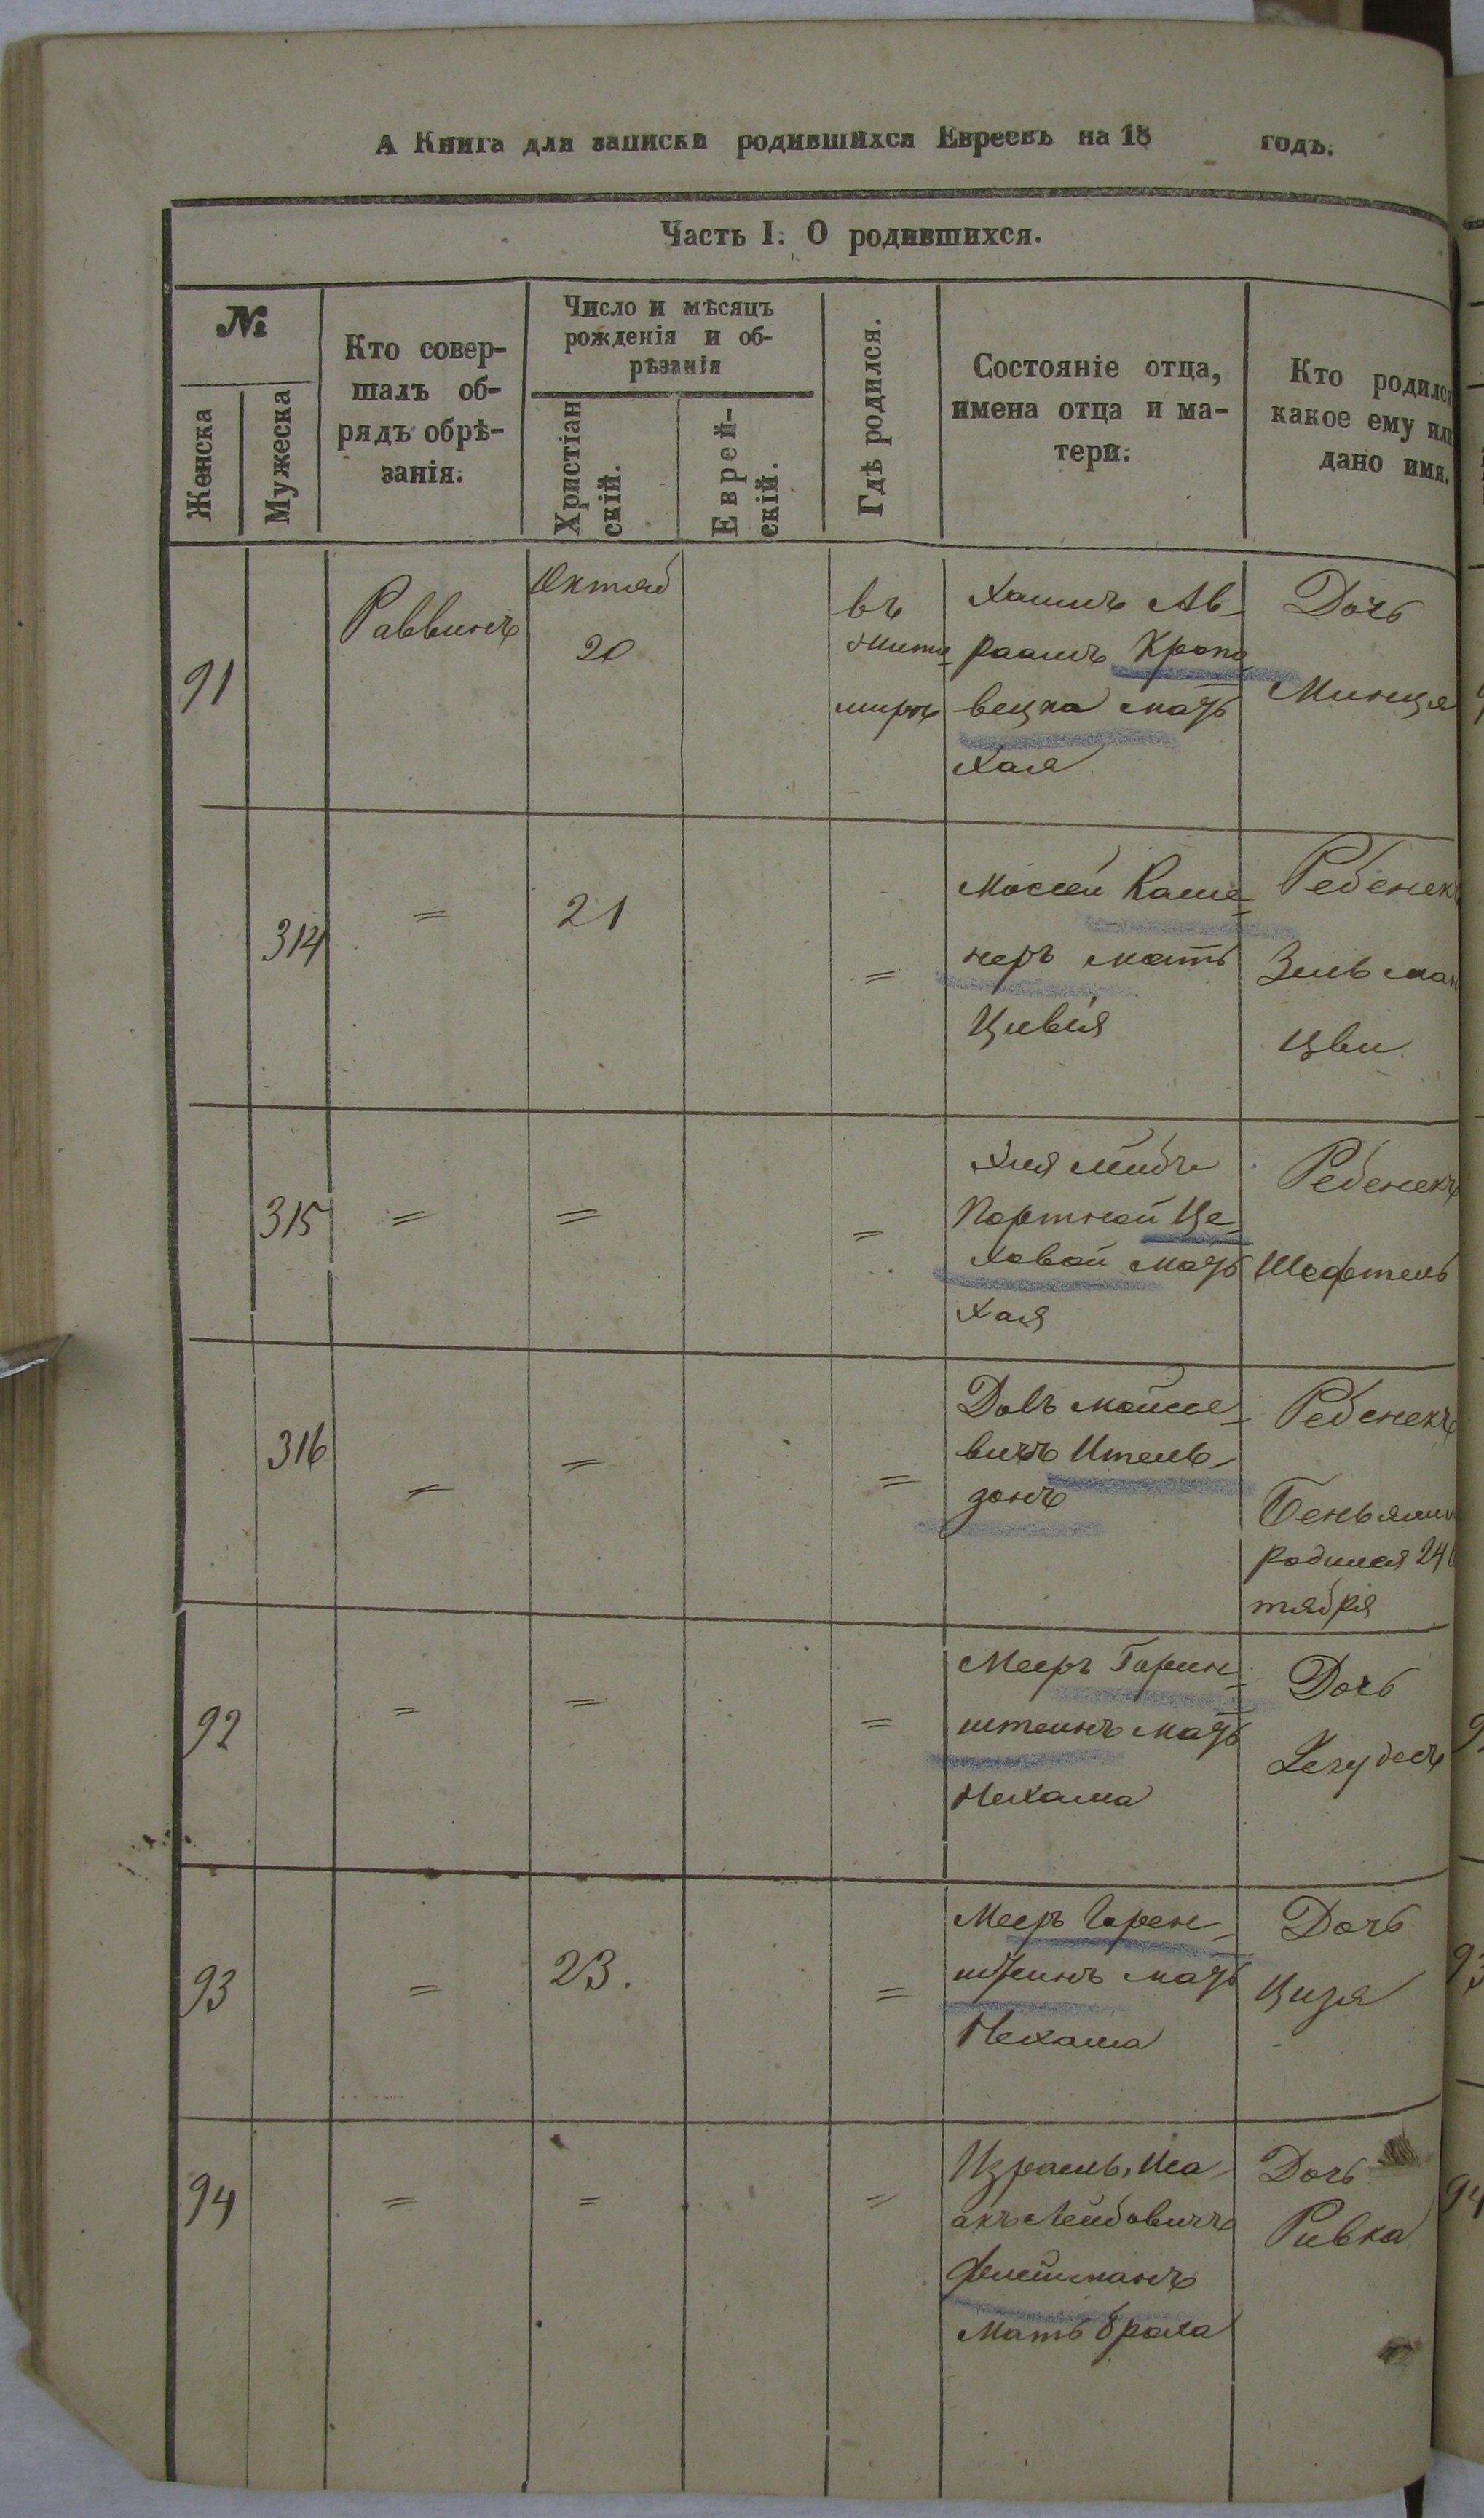 А Книга для записки родившихся Евреевъ на 18 годъ.
Часть I. О родившихся.
№
Женска
Мужеска
Кто совер-
шалъ об-
рядъ обрѣ-
занія.
Число и мѣсяцъ
рожденія и об-
рѣзанія
Христіан
скій.
Еврей-
скій.
Гдѣ родился.
Состояніе отца,
имена отца и ма-
тери.
Кто родился
какое ему или
дано имя.
91
Раввинъ
Октяб
20
въ
Жито
мирѣ
Хаимъ Ав-
раамъ Кропо-
вецка мать
Хая
Дочь
Минця
314
=
21
=
Моссей Каме-
неръ мать
Цивія
Ребенекъ
Зельман
Цви
315
=
=
=
Хия Лейбъ
Портной Це-
ховой мать
Хая
Ребенекъ
Шефтель
316
=
=
=
Довъ Мойсее-
вичъ Ительь-
зонъ
Ребенекъ
Беньямин
родился 24
тября
92
=
=
=
Мееръ Горин-
штеинъ мать
Нехама
Дочь
93
=
23.
=
Мееръ Горен-
штеинъ мать
Нехама
Дочь
Цизя
94
=
=
=
Израель, Иса-
акъ Лейбовичъ
Флейшманъ
Мать Браха
Дочь
Ривка